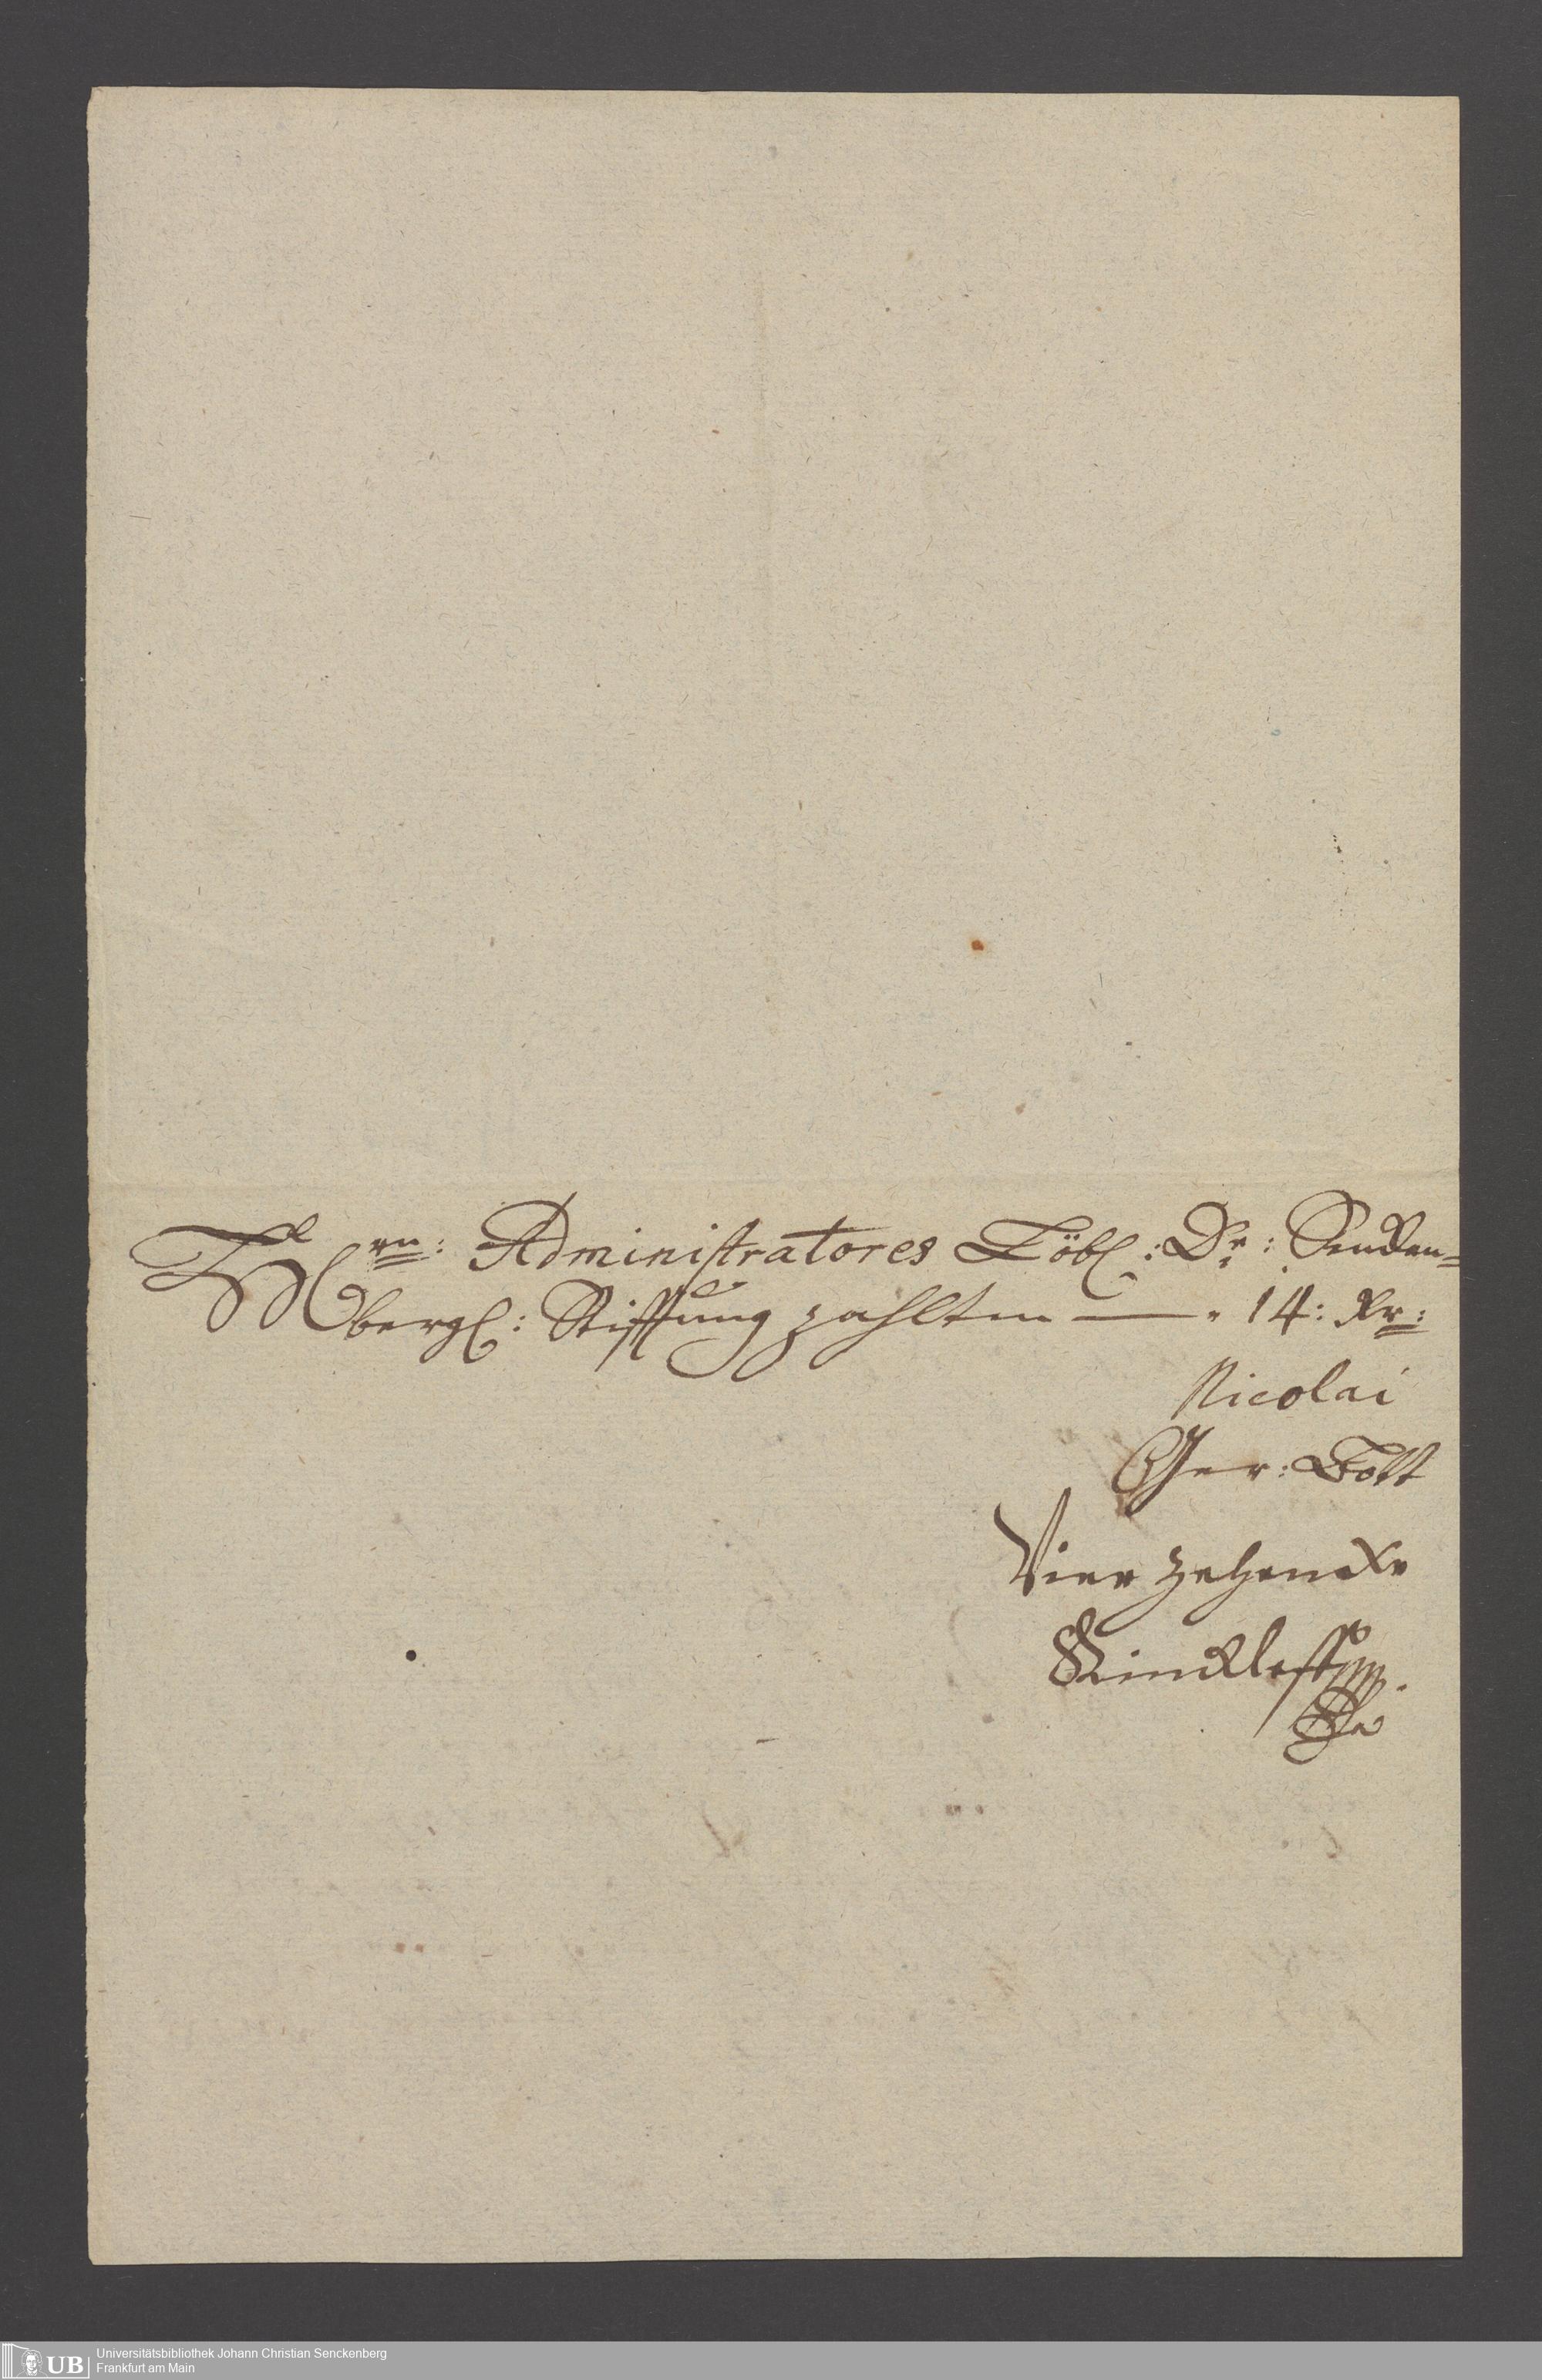 Hrn: Administratores Löbl: Dr: Sencken=
bergl: Stifftung zahlten — " 14: Xr:
Nicolai
Ger: Bott
Vier zehen Xr
UB Universitätsbibliothek Johann Christian Senckenberg
Frankfurt am Main